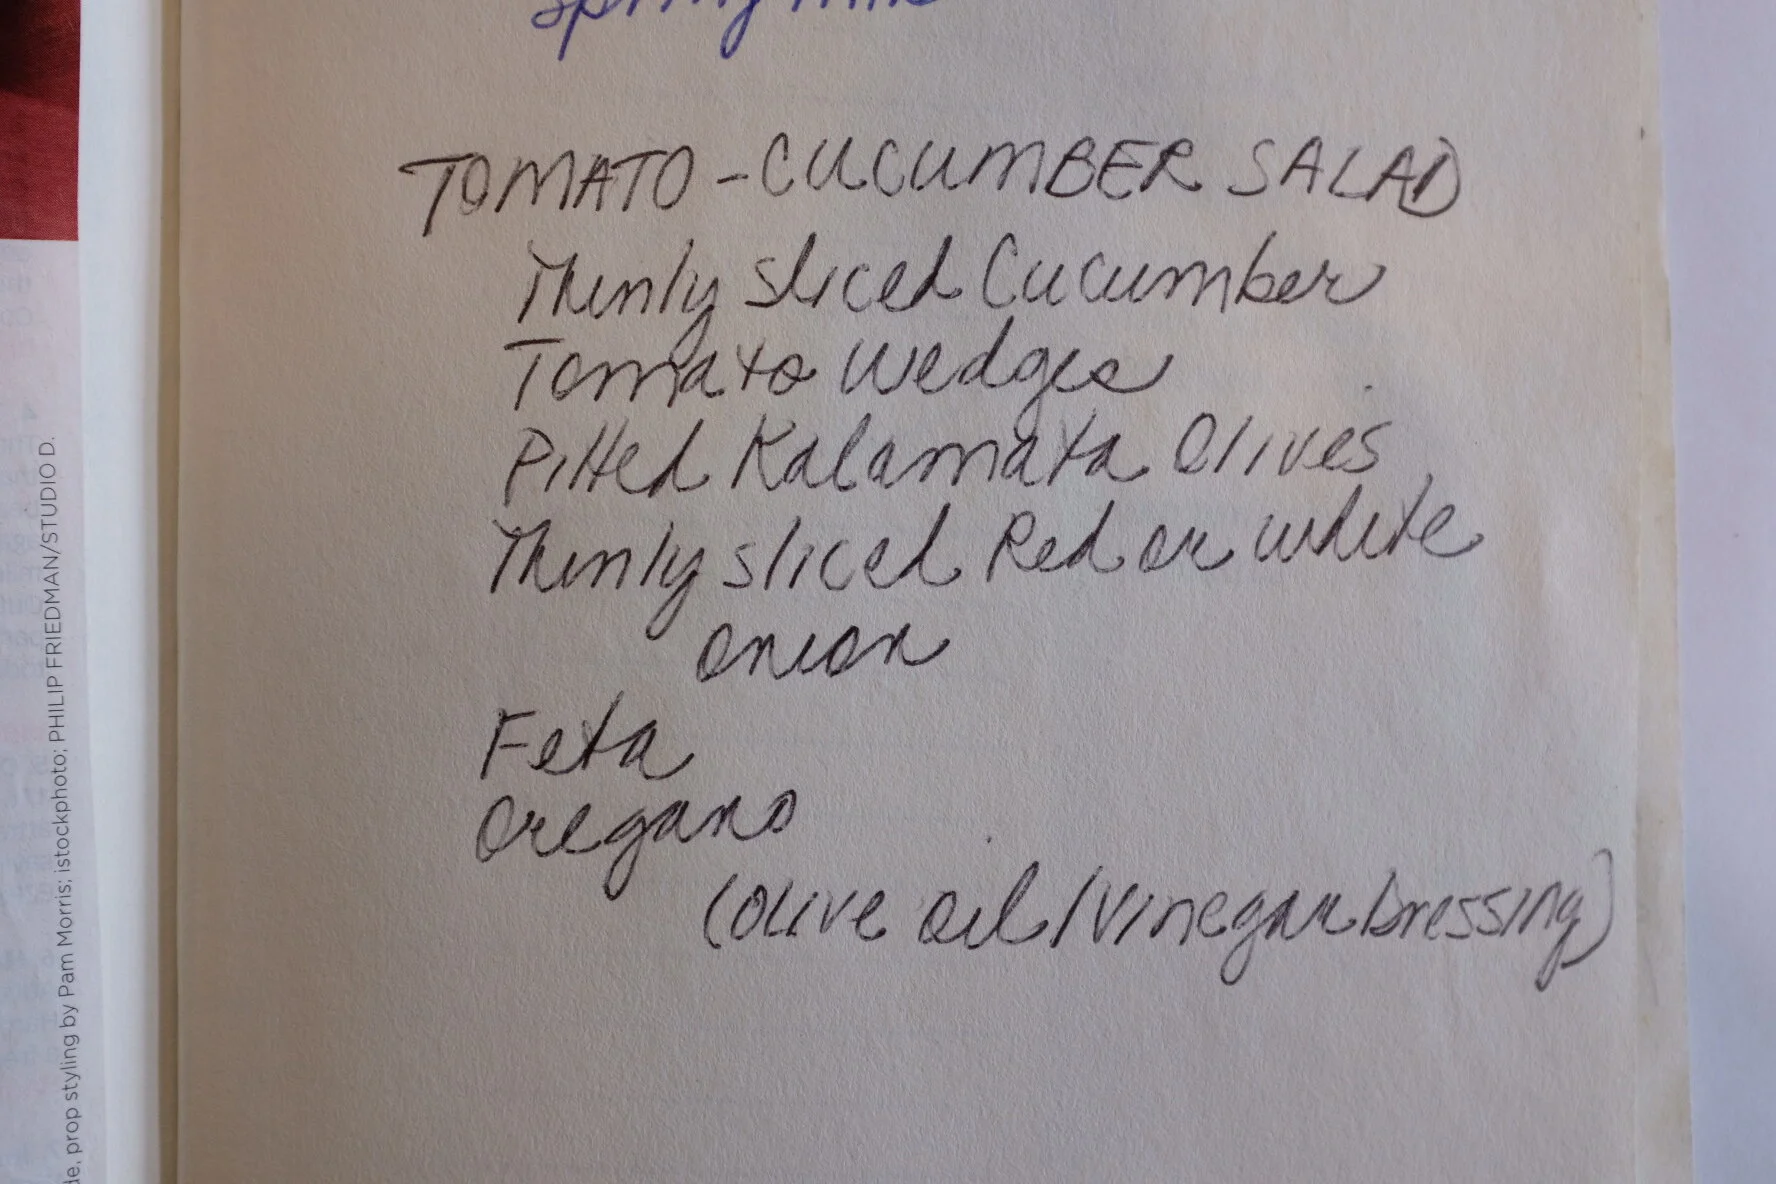 TOMATO-CUCUMBER SALAD
Thinly sliced Cucumber
Tomato Wedges
Pitted Kalamata Olives
Thinly sliced Red or white
onion
Feta
Oregano
(Olive oil/Vinegar Dressing)
prop styling by Pam Morris; istockphoto; PHILIP FRIEDMAN/STUDIO D.